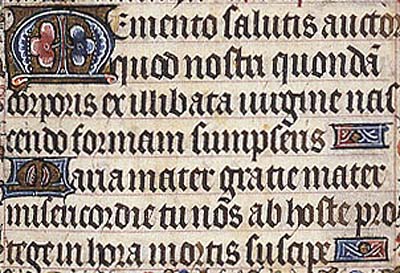 Memento salutis aucto
quod nostri quondā
corporis ex illibata uirgine nas
cendo formam sumpseris
Maria mater gratie mater
misericordie tu nos ab hoste pro
tege in hora mortis suscipe